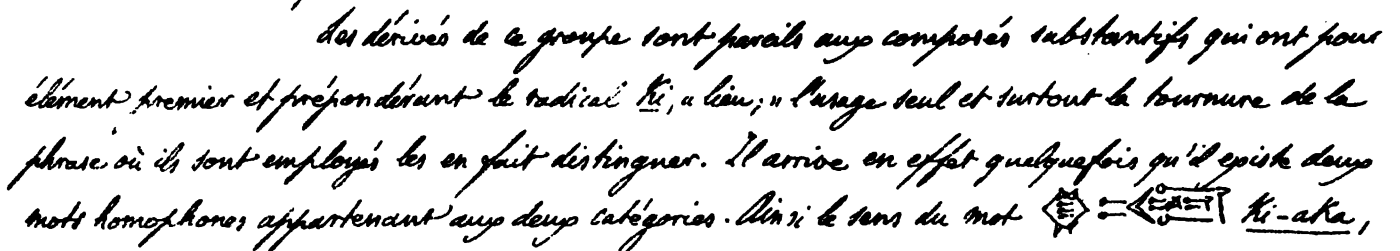 Les dérivés de ce groupe sont pareils aux composés substantifs qui ont pour
élément premier et prépondérant le radical Ki, « lieu; » l'usage seul et surtout la tournure de la
phrase où ils sont employés les en fait distinguer. Il arrive en effet quelquefois qu'il existe deux
mots homophones appartenant aux deux catégories. Ainsi le sens du mot Ki-aka,